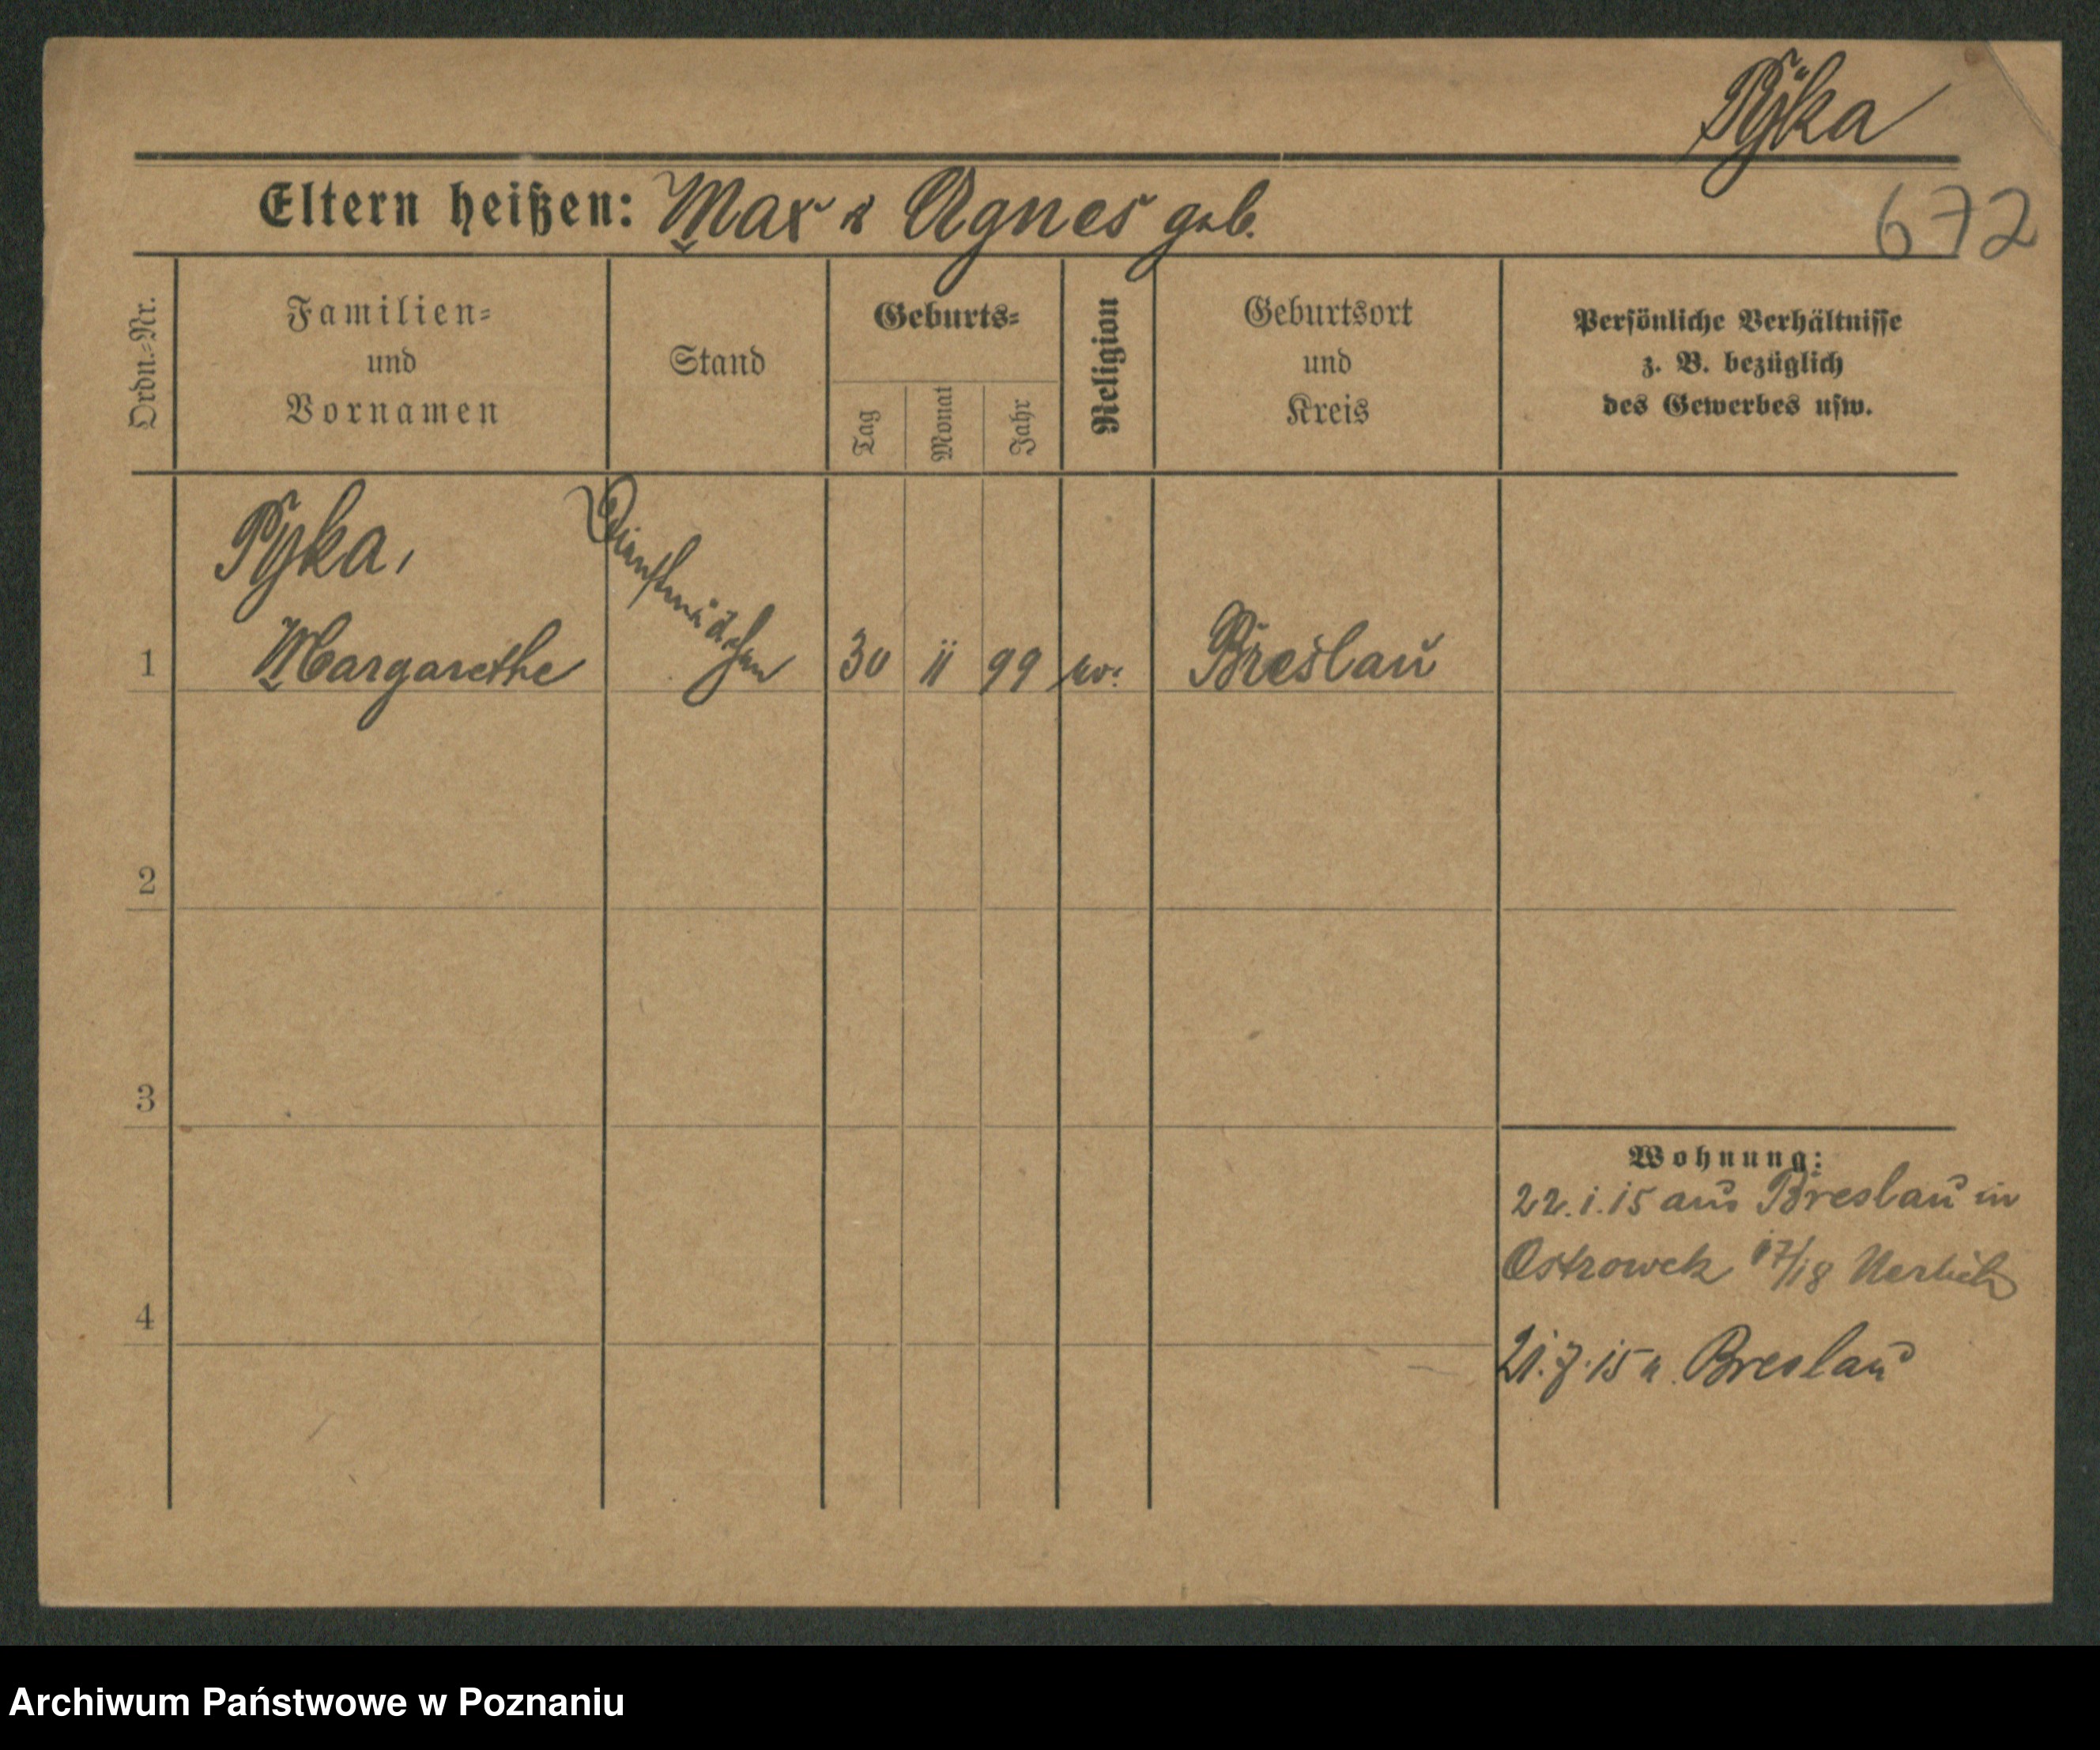 Pÿka
Eltern heißen: Max & Agnes geb.
672
Ordn.-Nr.
Familien-
und
Vornamen
Stand
Geburts-
Tag
Monat
Jahr
Religion
Geburtsort
und
Kreis
Persönliche Verhältnisse
z. B. bezüglich
des Gewerbes usw.
Pyka,
Dienstmädchen
1 Margarethe 30 11 99 ev. Breslau
2
3
4
Wohnung:
22.1.15 aus Breslau in
Ostrowek 17/18
21.7.15 n. Breslau
Archiwum Państwowe w Poznaniu